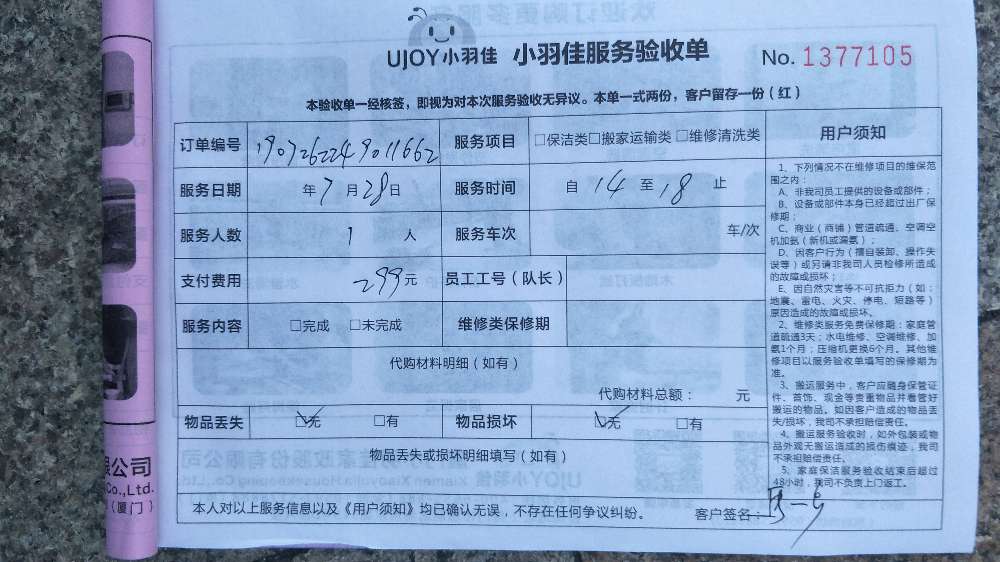 UJOY小羽佳 小羽佳服务验收单 No. 1377105
本验收单一经核签，即视为对本次服务验收无异议。本单一式两份，客户留存一份（红）
订单编号 1907262249011662 服务项目 □保洁类□搬家运输类 □维修清洗类
服务日期 年7月28日 服务时间 自 14 至 18 止
服务人数 1 人 服务车次 车/次
支付费用 299元 员工工号（队长）
服务内容 □完成 □未完成 维修类保修期
代购材料明细（如有）
代购材料总额： 元
物品丢失 ☑无 □有 物品损坏 ☑无 □有
物品丢失或损坏明细填写（如有）
本人对以上服务信息以及《用户须知》均已确认无误，不存在任何争议纠纷。 客户签名：
用户须知
1、下列情况不在维修项目的维保范
围之内：
A、非我司员工提供的设备或部件；
B、设备或部件本身已经超过出厂保
修期；
C、商业（商铺）管道疏通、空调空
机加氨（新机或漏氨）；
D、因客户行为（擅自装卸、操作失
误等）或另请非我司人员检修所造成
的故障或损坏；
E、因自然灾害等不可抗拒力（如：
地震、雷电、火灾、停电、短路等）
原因造成的故障或损坏。
2、维修类服务免费保修期：家庭管
道疏通3天；水电维修、空调维修、加
氨1个月；压缩机更换6个月。其他维
修项目以服务验收单填写的保修期为
准。
3、搬运服务中，客户应随身保管证
件、首饰、现金等贵重物品并看管好
搬运的物品。如因客户造成的物品丢
失/损坏，我司不承担赔偿责任。
4、搬运服务验收时，如外包装或物
品外观无搬运造成的损伤痕迹，我司
不承担赔偿责任。
5、家庭保洁服务验收结束后超过
48小时，我司不负责上门返工。
限公司
Co.,Ltd.
（厦门）